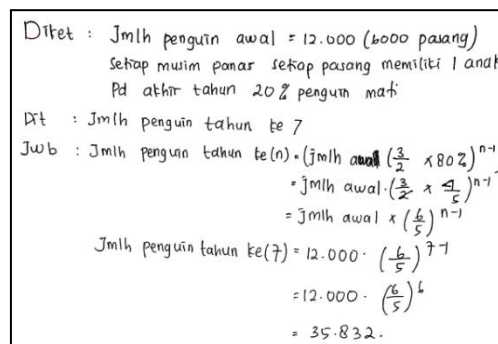 Diket : Jmlh penguin awal = 12.000 (6000 pasang)
Setiap musim panas setiap pasang memiliki 1 anak
Pd akhir tahun 20% penguin mati
Dit : Jmlh penguin tahun ke 7
Jwb : Jmlh penguin tahun ke(n) = (jmlh awal (3/2 × 80%)^n-1
= jmlh awal · (3/2 × 4/5)^n-1
= jmlh awal × (6/5)^n-1
Jmlh penguin tahun ke(7) = 12.000 · (6/5)^7-1
= 12.000 · (6/5)^6
= 35.832.